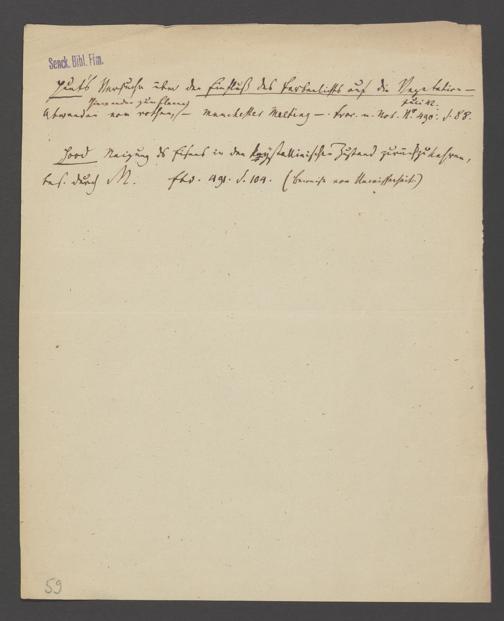 Senck. Bibl. Ffm.
Hunt's Versuche über den Einfluß des Farbenlichts auf die Vegetation –
Juli 42.
Abwenden von rothem, – Manchester Meeting – Fror. n. Not. No 490. S. 88.
Hood Neigung ds Eisens in den krystallinischen Zustand zurückzukehren,
bes. durch M. Ebd. 491. S. 104. (Beweise von Unwissenheit.)
59